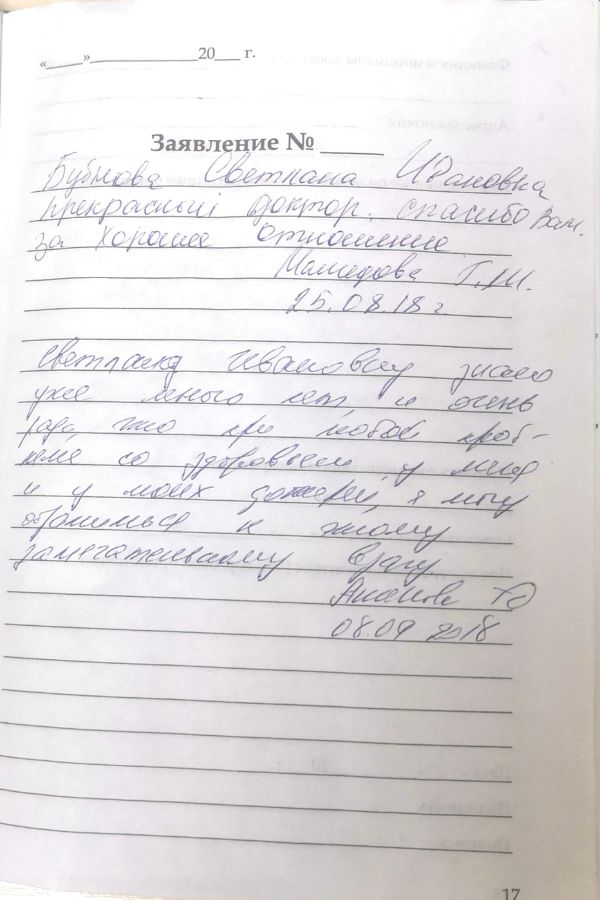 «_____»______________20___ г.
Заявление № _____
Бубнова Светлана Ивановна
прекрасный доктор. спасибо Вам.
за хорошее отношение
Мамедова Г.Ш.
25.08.18 г
Светлану Ивановну знаю
уже много лет и очень
рада, что при любой проб-
леме со здоровьем у меня
и у моих дочерей, я могу
обратиться к этому
замечательному врачу
Ю
08.09 2018
17